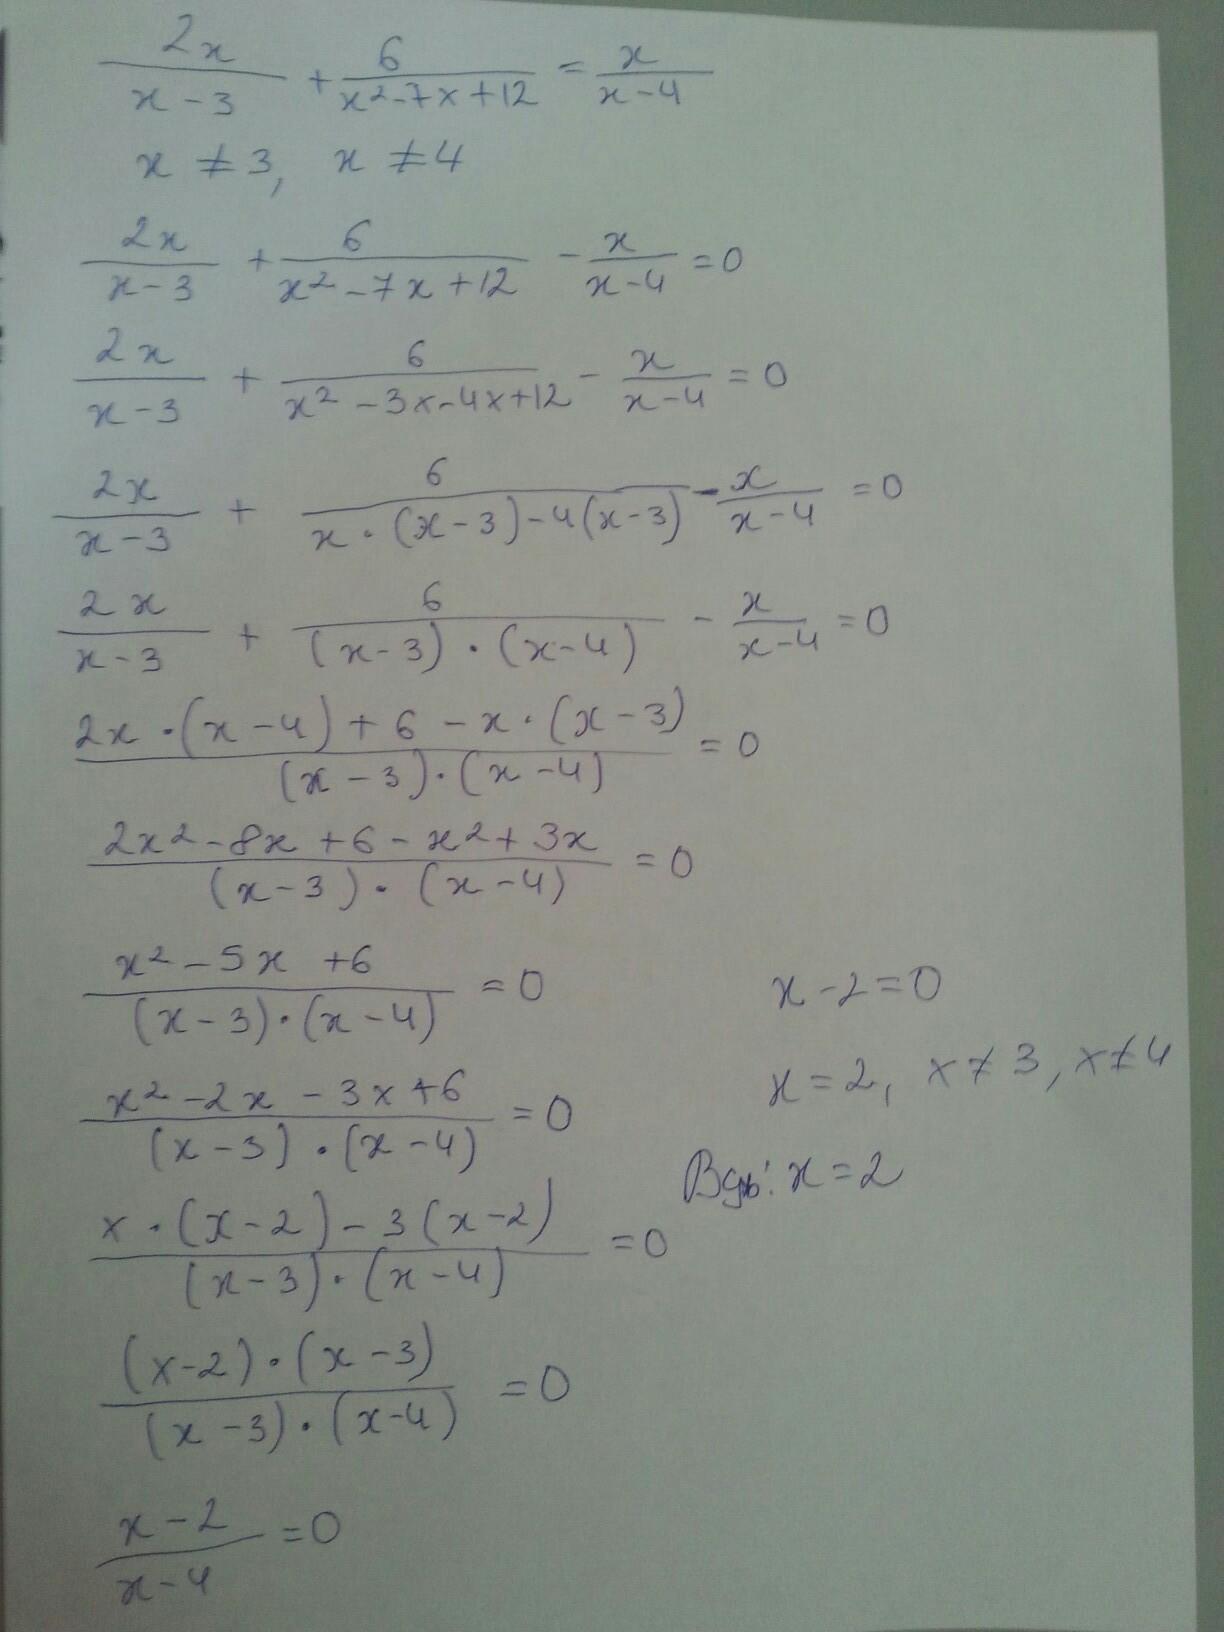 2x/(x-3) + 6/(x²-7x+12) = x/(x-4)
x ≠ 3, x ≠ 4
2x/(x-3) + 6/(x²-7x+12) - x/(x-4) = 0
2x/(x-3) + 6/(x²-3x-4x+12) - x/(x-4) = 0
2x/(x-3) + 6/(x·(x-3)-4(x-3)) - x/(x-4) = 0
2x/(x-3) + 6/((x-3)·(x-4)) - x/(x-4) = 0
(2x·(x-4)+6-x·(x-3))/((x-3)·(x-4)) = 0
(2x²-8x+6-x²+3x)/((x-3)·(x-4)) = 0
(x²-5x+6)/((x-3)·(x-4)) = 0
(x²-2x-3x+6)/((x-3)·(x-4)) = 0
(x·(x-2)-3(x-2))/((x-3)·(x-4)) = 0
((x-2)·(x-3))/((x-3)·(x-4)) = 0
(x-2)/(x-4) = 0
x-2=0
x=2, x≠3, x≠4
x=2